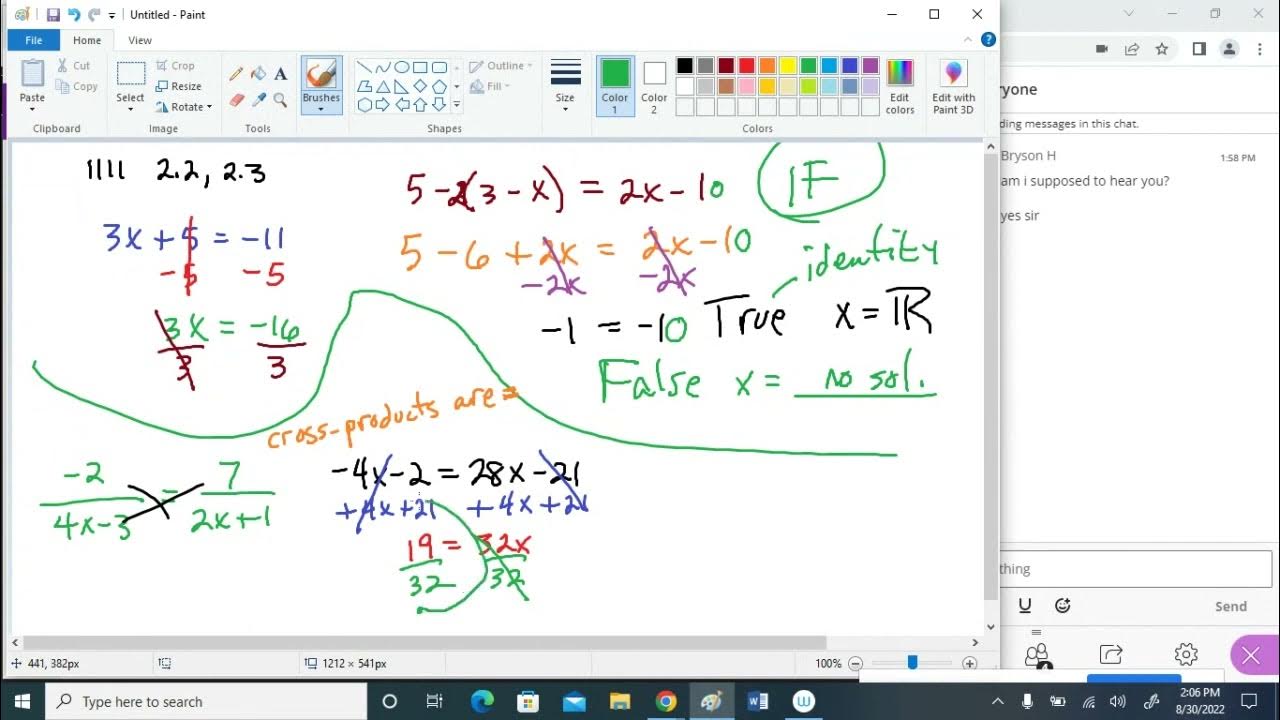 Untitled - Paint
File Home View
Paste Cut Copy Clipboard
Select Crop Resize Rotate Image
Tools
Brushes
Outline Fill Shapes
Size
Color 1 Color 2 Edit colors Colors
Edit with Paint 3D
1111 2.2, 2.3
3x + 5 = -11
-5 -5
3x = -16
3 3
5 - 2(3 - x) = 2x - 10
5 - 6 + 2x = 2x - 10
-2x -2x
-1 = -10 True x = ℝ
IF
identity
False x = no sol.
cross-products are =
-2 = 7
4x-3 2x+1
-4x - 2 = 28x - 21
+4x+21 +4x+21
19 = 32x
32 32
441, 382px
1212 × 541px
100%
ryone
ding messages in this chat.
Bryson H 1:58 PM
am i supposed to hear you?
yes sir
thing
U Send
4
Type here to search
2:06 PM
8/30/2022